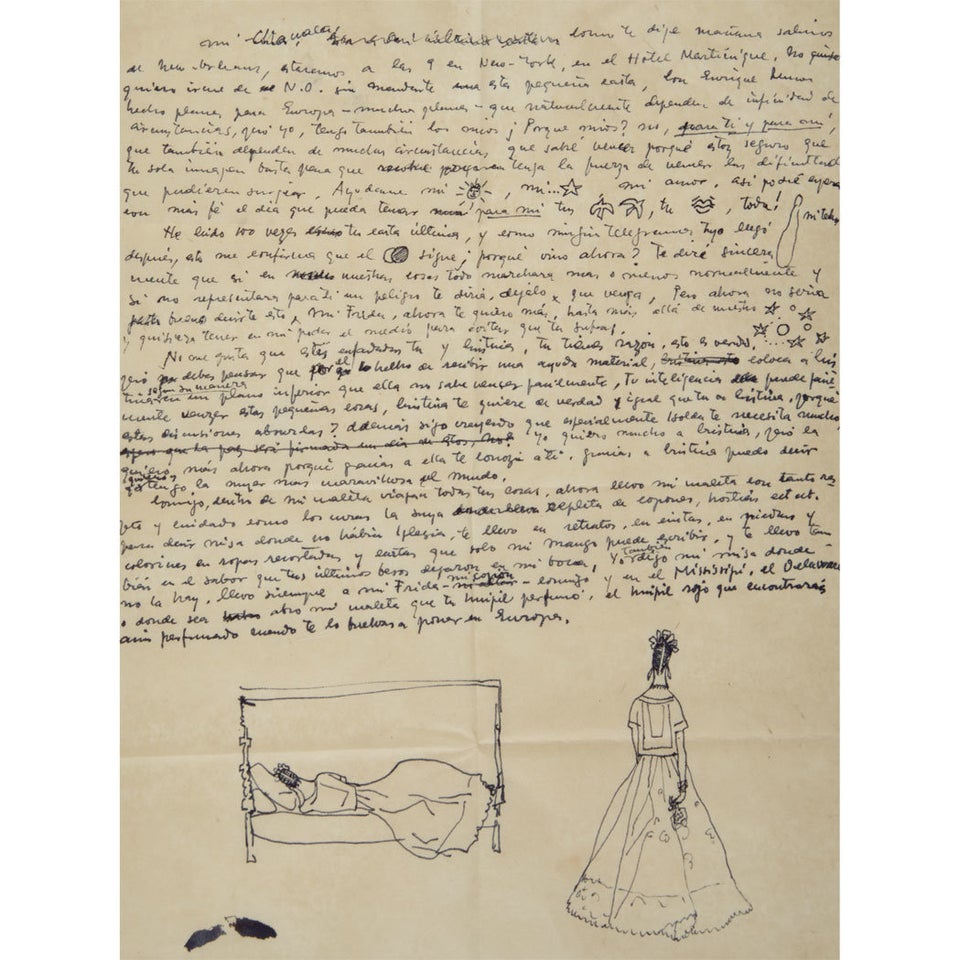 mi Chiquita, como te dije mañana salimos
de New-Orleans, estaremos a las 9 en New-York, en el Hotel Martinique. No quise
quiero irme de N.O. sin mandarte una esta pequeña carta, con Enrique hemos
hecho planes para Europa - muchos planes - que naturalmente dependen de infinidad de
circunstancias, pero yo, tengo también los míos ¡Porque míos? no, para ti y para mí,
que también dependen de muchas circunstancias, que sabré vencer porqué estoy seguro que
tu sola imagen basta para que tenga la fuerza de vencer las dificultad
que pudieran surgir, Ayudenme mi , mi... , mi amor, así podré
con más fé el día que pueda tener para mí tus , tu , toda!
He leído 100 veces tu carta última, y como ningún telegrama tuyo llegó
después, esto me confirma que el sigue; porqué vino ahora? te diré sincera
mente que si en nuestras cosas todo marchara mas o menos normalmente y
si no representara para ti un peligro te diria, dejalo, que venga, Pero ahora no seria
bueno decirte esto, mi Frida, ahora te quiero más, hasta más allá de nuestro
y quisiera tener en mi poder el medio para evitar que tu sufras.
No me gusta que estés enfadadas tu y Cristina, tu tienes razón, esto es verdad,
pero no debes pensar que el hecho de recibir una ayuda material, coloca a Cris
tina según su manera en un plano inferior que ella no sabe vencer facilmente, tu inteligencia puede facil
mente vencer estas pequeñas cosas, Cristina te quiere de verdad y igual que tu a Cristina, porqué
estas discusiones absurdas? además sigo creyendo que especialmente Isolda te necesita mucho
Yo quiero mucho a Cristina, pero la
quiero más ahora porqué gracias a ella te conocí a ti. gracias a Cristina puedo decir
tengo la mujer más maravillosa del mundo.
Conmigo, dentro de mi maleta viajan todas tus cosas, ahora llevo mi maleta con tanto res
peto y cuidado como los curas la suya repleta de copones, hostias ect. ect.
para decir misa donde no habia Iglesia, te llevo en retratos, en cintas, en piedras y
colorines en ropas recortadas y cartas que solo mi mango puede escribir, y te llevo tam
bién en el sabor que tus últimos besos dejaron en mi boca, Yo también digo mi misa donde
no la hay. llevo siempre a mi Frida - mi copón - conmigo y en el Mississipí, el Delaware
o donde sea abro mi maleta que tu huipil perfumó, el huipil rojo que encontrarás
aún perfumado cuando te lo vuelvas a poner en Europa.